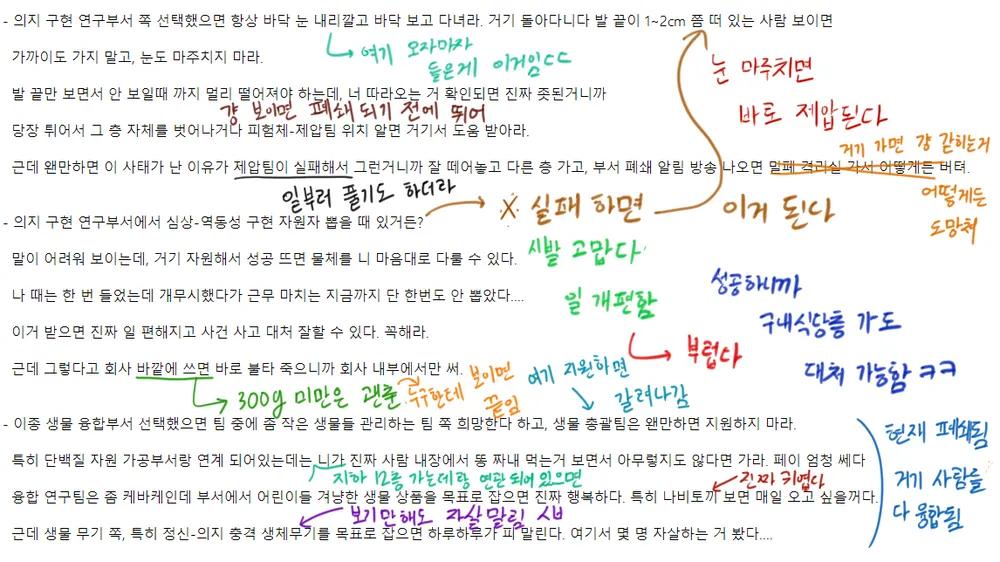 - 의지 구현 연구부서 쪽 선택했으면 항상 바닥 눈 내리깔고 바닥 보고 다녀라. 거기 돌아다니다 발 끝이 1~2cm 쯤 떠 있는 사람 보이면
가까이도 가지 말고, 눈도 마주치지 마라.
여기 오자마자
들은게 이거임ㄷㄷ
눈 마주치면
바로 제압된다
발 끝만 보면서 안 보일때 까지 멀리 떨어져야 하는데, 너 따라오는 거 확인되면 진짜 좆된거니까
걍 보이면 폐쇄 되기 전에 뛰어
당장 튀어서 그 층 자체를 벗어나거나 피험체-제압팀 위치 알면 거기서 도움 받아라.
거기 가면 걍 갇히는거
근데 왠만하면 이 사태가 난 이유가 제압팀이 실패해서 그런거니까 잘 떼어놓고 다른 층 가고, 부서 폐쇄 알림 방송 나오면 밀폐 격리실 가서 어떻게든 버텨.
어떻게든
도망쳐
일부러 풀기도 하더라
X 실패 하면
이거 된다
- 의지 구현 연구부서에서 심상-역동성 구현 자원자 뽑을 때 있거든?
시발 고맙다
말이 어려워 보이는데, 거기 자원해서 성공 뜨면 물체를 니 마음대로 다룰 수 있다.
일 개편함
나 때는 한 번 들었는데 개무시했다가 근무 마치는 지금까지 단 한번도 안 뽑았다....
성공하니까
구내식당층 가도
대처 가능함 ㅋㅋ
이거 받으면 진짜 일 편해지고 사건 사고 대처 잘할 수 있다. 꼭해라.
부럽다
근데 그렇다고 회사 바깥에 쓰면 바로 불타 죽으니까 회사 내부에서만 써.
300g 미만은 괜춘
누구한테 보이면
끝임
여기 지원하면
갈려나감
- 이종 생물 융합부서 선택했으면 팀 중에 좀 작은 생물들 관리하는 팀 쪽 희망한다 하고, 생물 총괄팀은 왠만하면 지원하지 마라.
특히 단백질 자원 가공부서랑 연계 되어있는데는 니가 진짜 사람 내장에서 똥 짜내 먹는거 보면서 아무렇지도 않다면 가라. 페이 엄청 쎄다
지하 12층 가는데랑 연관 되어 있으면
진짜 귀엽다
융합 연구팀은 좀 케바케인데 부서에서 어린이들 겨냥한 생물 상품을 목표로 잡으면 진짜 행복하다. 특히 나비토끼 보면 매일 오고 싶을꺼다.
보기만해도 자살말림 ㅅㅂ
근데 생물 무기 쪽, 특히 정신-의지 충격 생체무기를 목표로 잡으면 하루하루가 피 말린다. 여기서 몇 명 자살하는 거 봤다....
현재 폐쇄됨
거기 사람들
다 융합됨